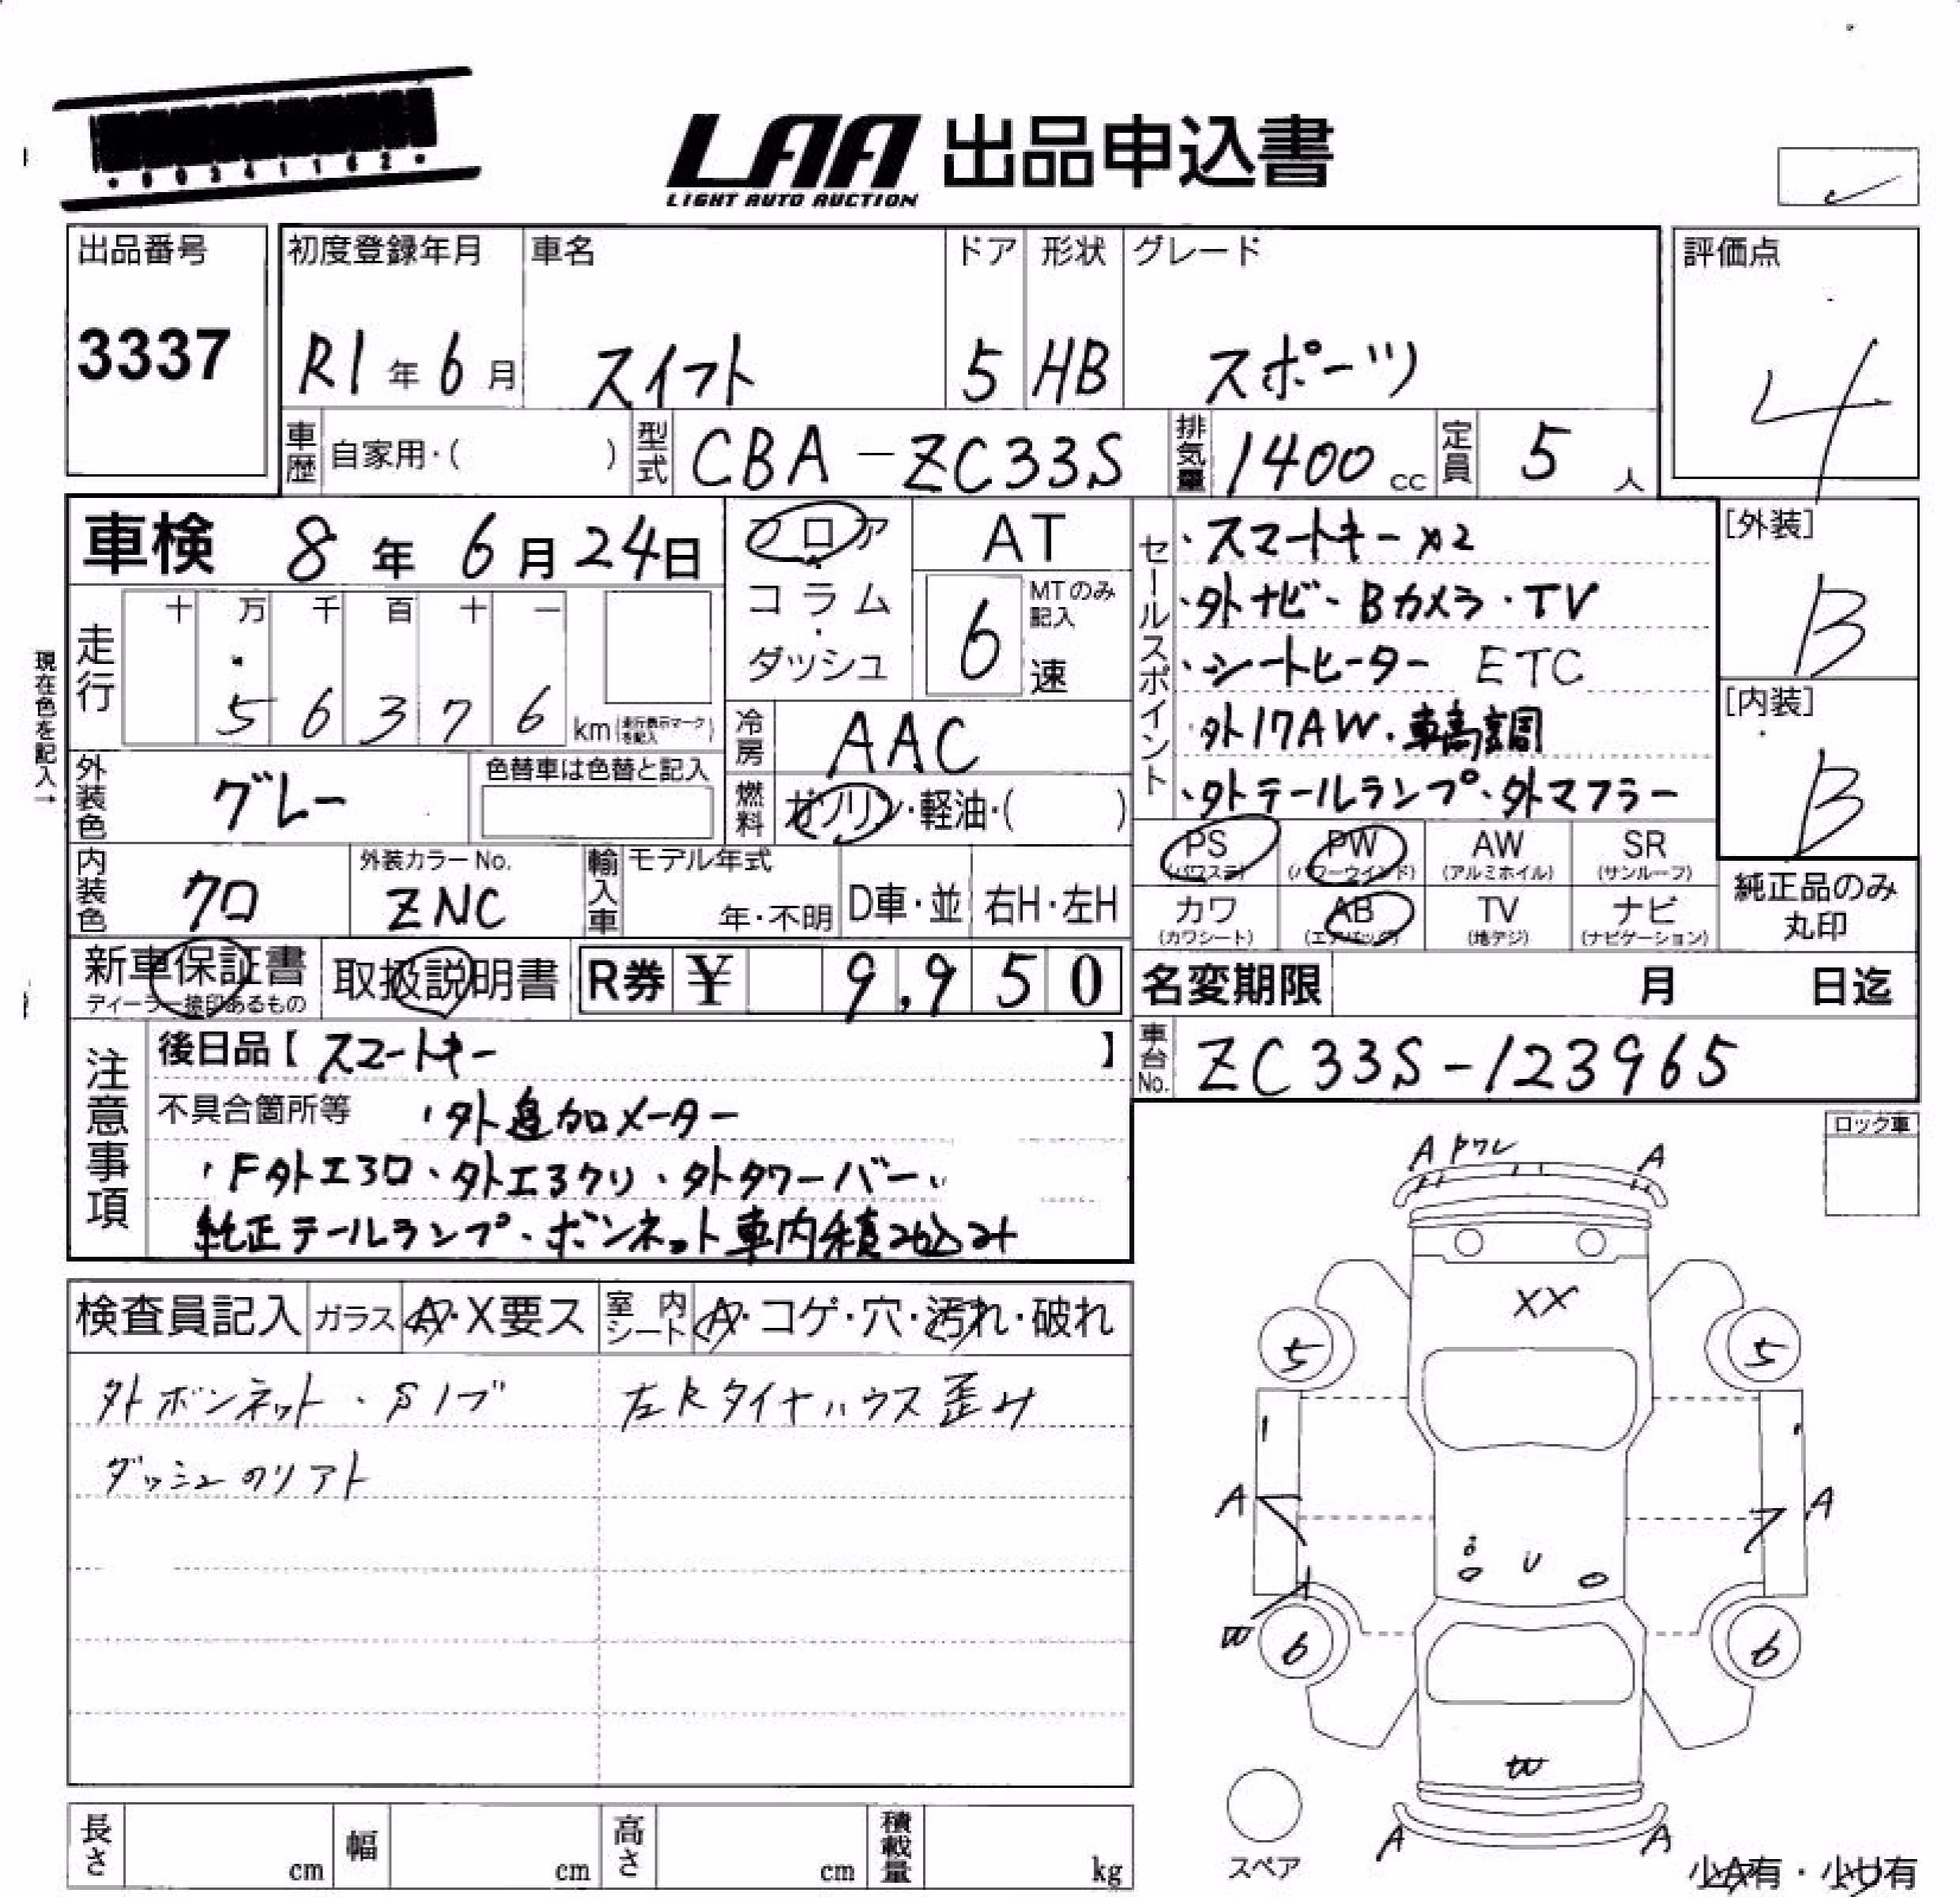 ・00341162・
LAA 出品申込書
LIGHT AUTO AUCTION
出品番号
3337
初度登録年月
R1年6月
車名
スイフト
ドア
5
形状
HB
グレード
スポーツ
評価点
4
車歴 自家用・( )
型式 CBA-ZC33S
排気量 1400cc
定員 5人
車検 8年6月24日
フロア
コラム
・
ダッシュ
AT
6 MTのみ記入
速
セールスポイント
・スマートキーx2
・外ナビ・Bカメラ・TV
・シートヒーター ETC
・外17AW・車高調
・外テールランプ・外マフラー
[外装]
B
[内装]
B
現在色を記入→
走行
十 万 千 百 十 一
5 6 3 7 6 km(走行表示マークを記入)
冷房 AAC
燃料 ガソリン・軽油・( )
外装色 グレー
色替車は色替と記入
内装色 クロ
外装カラーNo.
ZNC
輸入車
モデル年式
年・不明
D車・並
右H・左H
PS
(パワステ)
PW
(パワーウインド)
AW
(アルミホイル)
SR
(サンルーフ)
カワ
(カワシート)
AB
(エアバッグ)
TV
(地デジ)
ナビ
(ナビゲーション)
純正品のみ
丸印
新車保証書
ディーラー捺印あるもの
取扱説明書
R券 ¥ 9,950
名変期限 月 日迄
車台No. ZC33S-123965
注意事項
後日品【スマートキー】
不具合箇所等 ・外追加メーター
・F外エアロ・外エアクリ・外タワーバー
純正テールランプ・ボンネット車内積み込み
検査員記入
ガラス A・X要ス
室内シート A・コゲ・穴・汚れ・破れ
外ボンネット・Sノブ
ダッシュのリアト
左Rタイヤハウス歪み
ロック車
A ワレ A
XX
5 5
A A
U
W
6 6
W
A A
スペア
少A有・少U有
長さ cm
幅 cm
高さ cm
積載量 kg